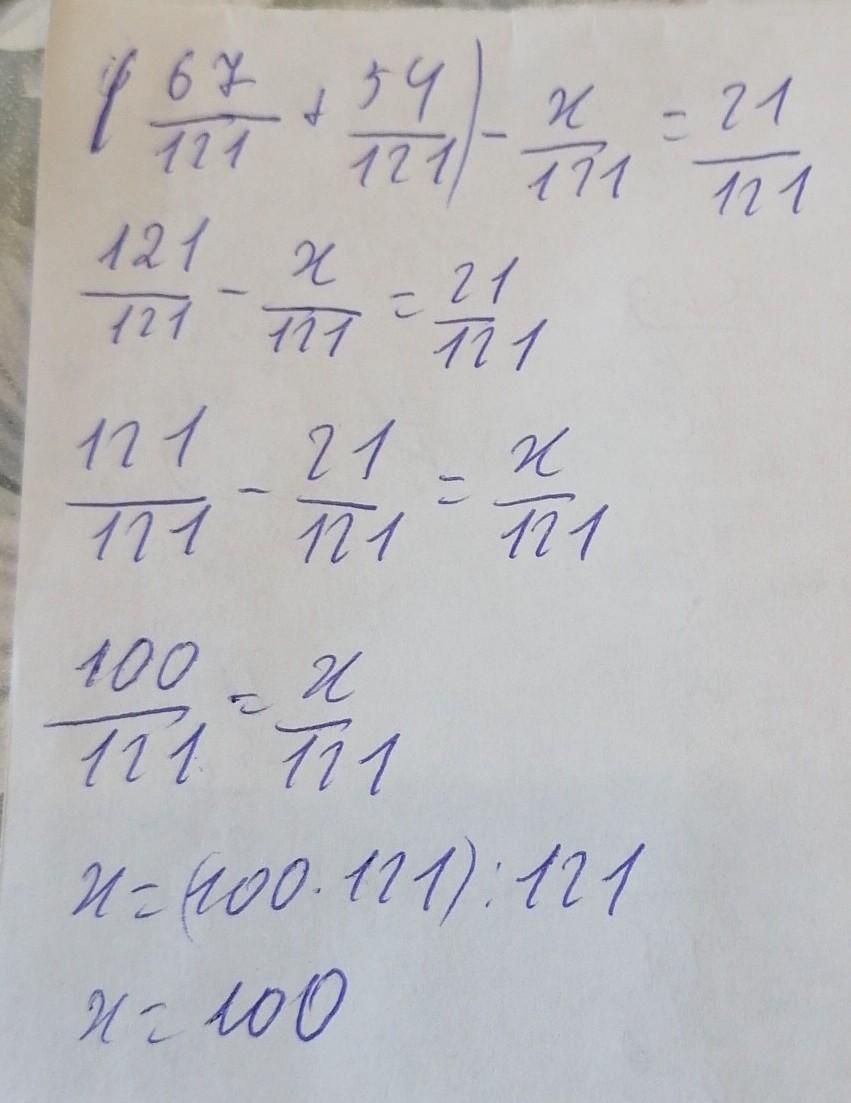 (67/121 + 54/121) - x/121 = 21/121
121/121 - x/121 = 21/121
121/121 - 21/121 = x/121
100/121 = x/121
x = (100 · 121) : 121
x = 100